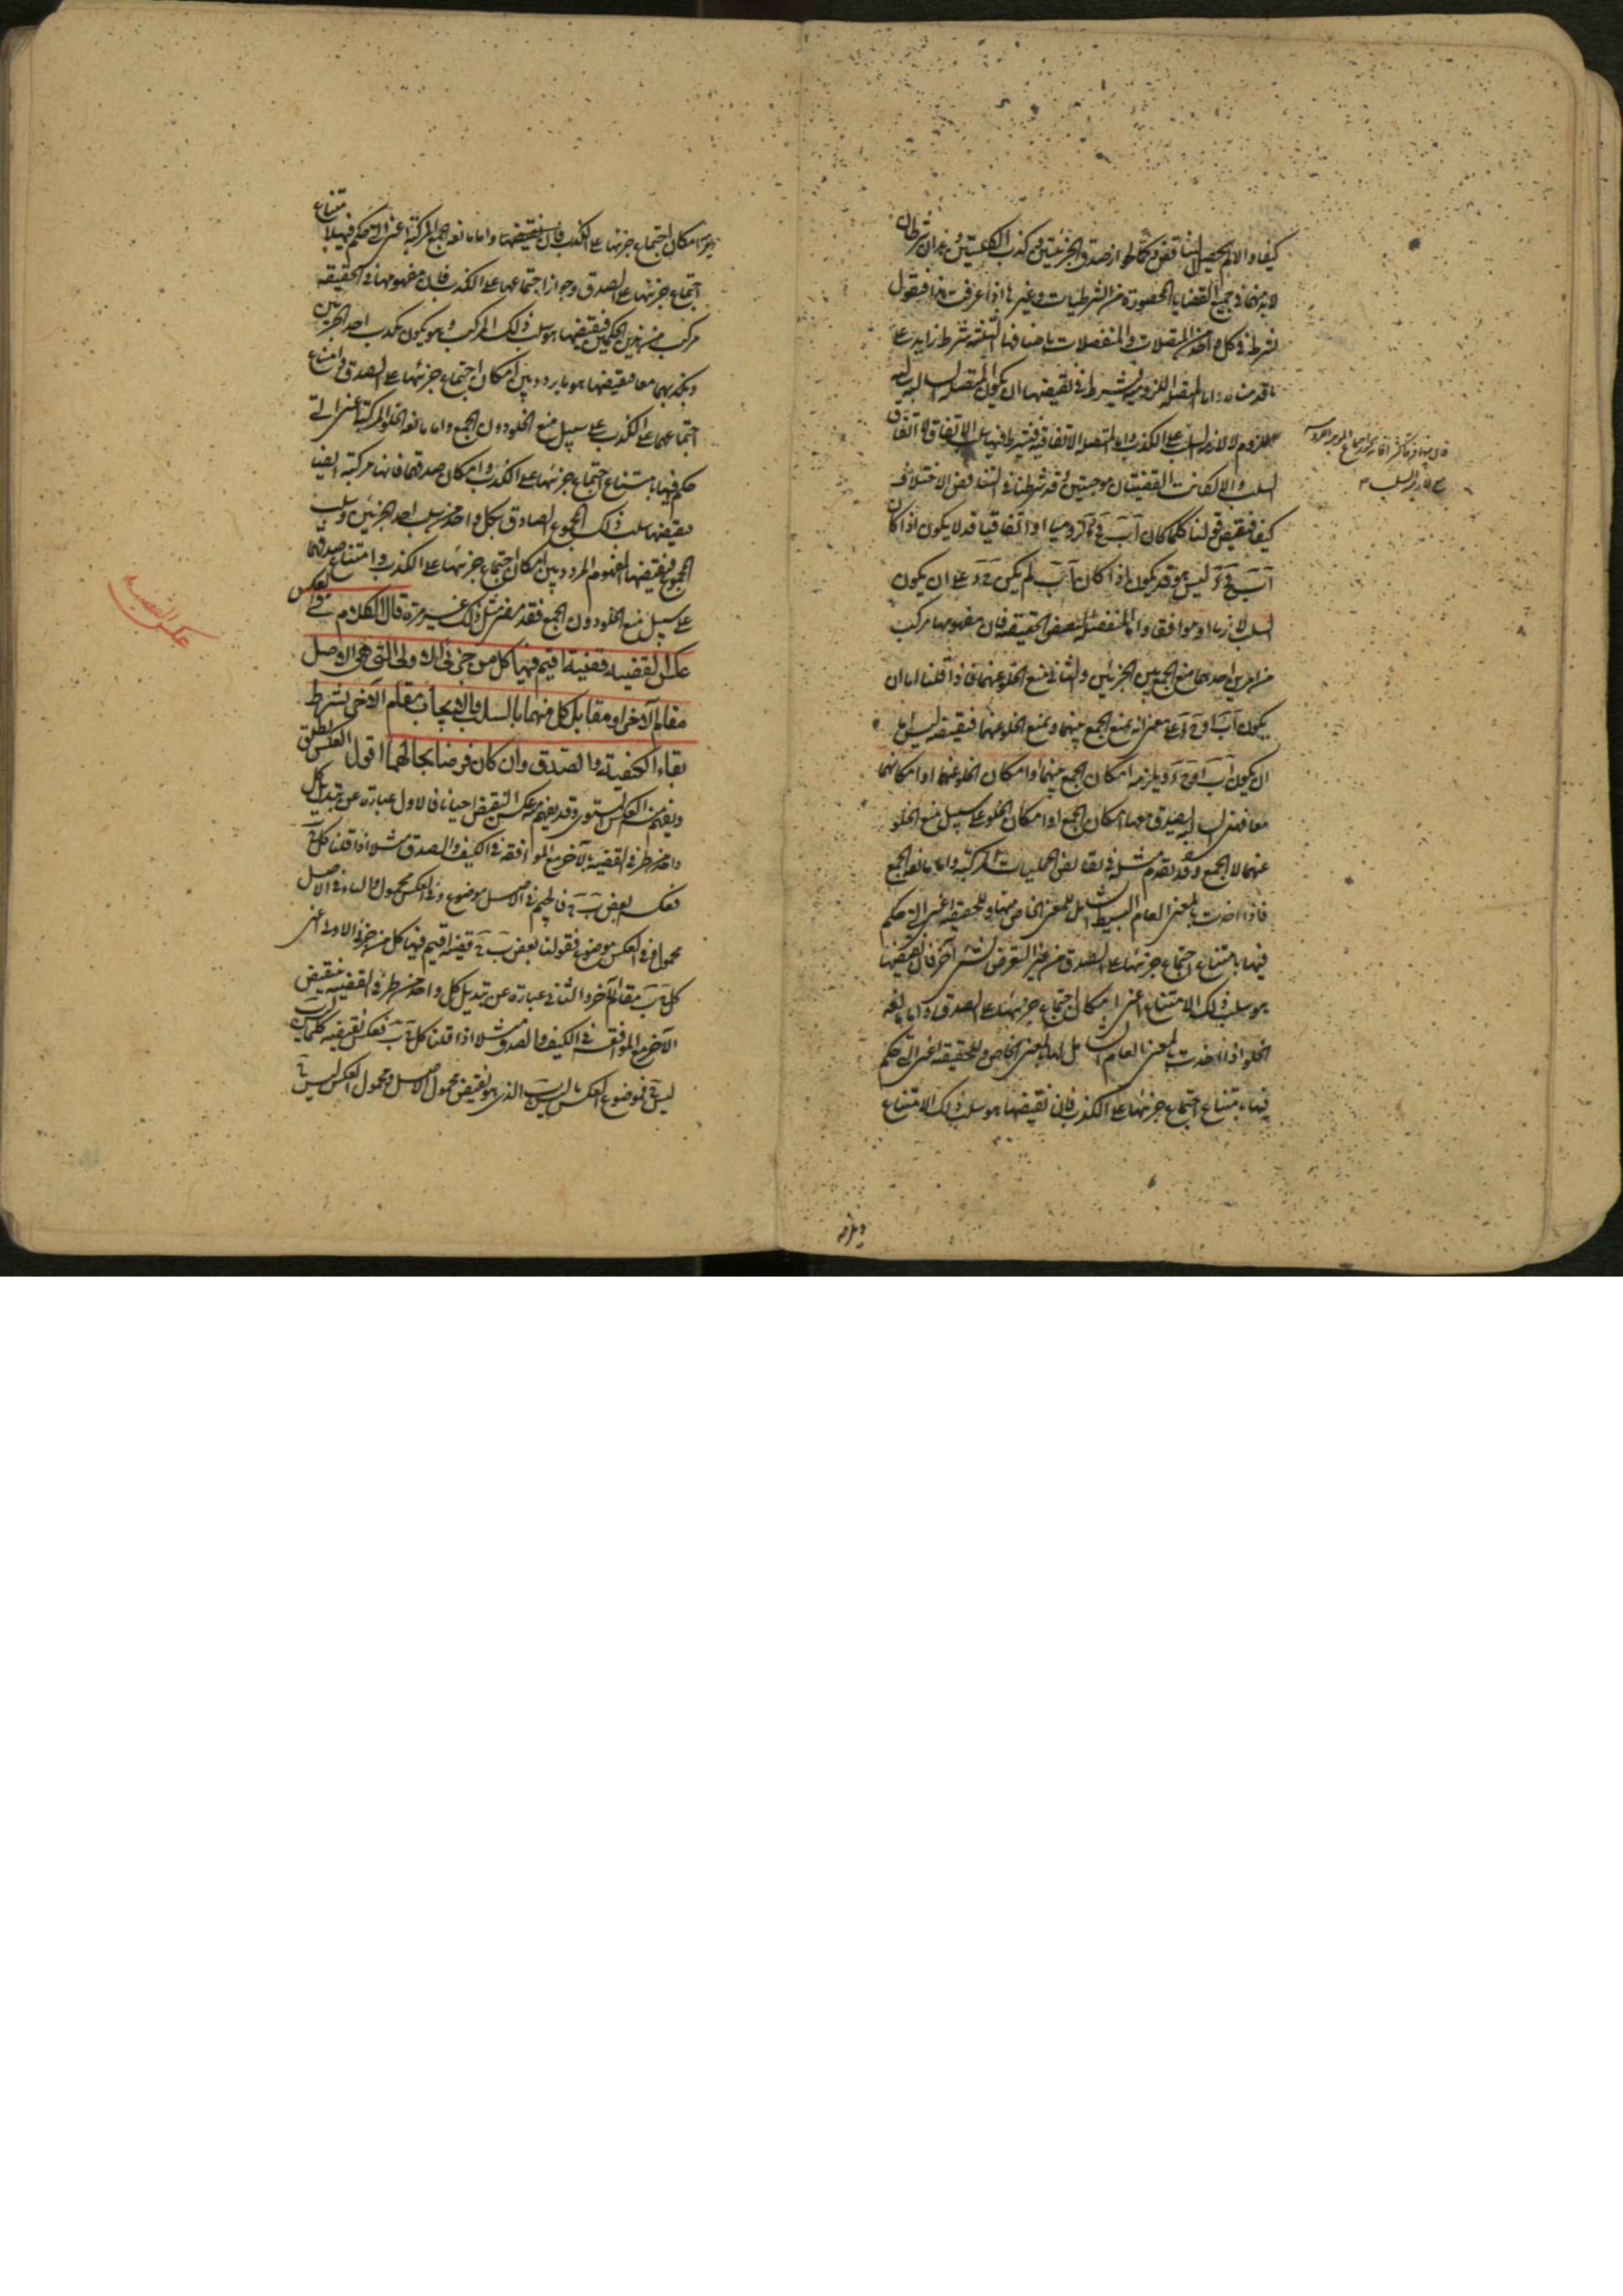 كيفا والا لم يحصل التناقض وكما لجواز صدق الجزئيتين وكذب الكليتين وهذان شرطان
لابد منهما في جميع القضايا المحصورة من الشرطيات وغيرها اذا عرفت هذا فنقول
نشرط في كل واحد من المتصلات والمنفصلات باصنافها الثلثة شرط زايد على
ما قدمناه اما المتصلة اللزومية فيشترط في نقيضها ان يكون المتصل السالبة
اللزوم لا لازم السلب على الكذب واما المتصلة الاتفاقية فيشترط فيها سلب الاتفاق لا اتفاق
السلب والا لكانت القضيتان موجبتين وقد شرطنا في التناقض الاختلاف
كيفا فنقيض قولنا كلما كان اب فج د لزوميا او اتفاقيا قد لا يكون اذا كان
اب فج د ليس هو قد يكون اذا كان اب لم يكن ج د على ان يكون
السلب لازما او موافقا واما المنفصلة فنقيض الحقيقية فان مفهومها مركب
من امرين احدهما منع الجمع بين الجزئين والثاني منع الخلو عنهما فاذا قلنا اما ان
يكون اب او ج د على معنى انه يمنع الجمع بينهما ويمنع الخلو عنهما فنقيضه ليس اما
ان يكون اب او ج د ويلزمه امكان الجمع بينهما او امكان الخلو عنهما او امكانهما
معا فهذا السلب يصدق معها امكان الجمع او امكان الخلو على سبيل منع الخلو
عنهما لا الجمع وقد تقدم مثله في نقائض الحمليات المركبة واما مانعة الجمع
فاذا اخذت بالمعنى العام البسيط الشامل للمعنى الخاص منها وللحقيقية اعني التي حكم
فيها بامتناع اجتماع جزئيها على الصدق من غير التعرض لشيء آخر فان نقيضها
هو سلب ذلك الامتناع اعني امكان اجتماع جزئيها على الصدق واما مانعة
الخلو اذا اخذت بالمعنى العام الشامل لها بالمعنى الخاص وللحقيقية اعني التي حكم
فيها بامتناع اجتماع جزئيها على الكذب فان نقيضها هو سلب ذلك الامتناع
ويلزمه
ويلزمه امكان اجتماع جزئيها على الكذب فان نقيضها واما مانعة الجمع المركبة اعني التي حكم فيها بامتناع
اجتماع جزئيها على الصدق وجواز اجتماعهما على الكذب فان مفهومها في الحقيقة
مركب من هذين الحكمين فنقيضها هو سلب ذلك المركب وهو يكون بكذب احد الجزئين
وبكذبهما معا فنقيضها هو ما يردد بين امكان اجتماع جزئيها على الصدق وامتناع
اجتماعهما على الكذب على سبيل منع الخلو دون الجمع واما مانعة الخلو المركبة اعني التي
حكم فيها بامتناع اجتماع جزئيها على الكذب وامكان صدقهما فانها مركبة ايضا
فنقيضها سلب ذلك المجموع الصادق بكل واحد من سلب احد الجزئين وسلب
المجموع فنقيضها المفهوم المردد بين امكان اجتماع جزئيها على الكذب وامتناع صدقهما
على سبيل منع الخلو دون الجمع فقد مضى مثل ذلك غير مرة قال الكلام في العكس
عكس القضية قضية اقيم فيها كل من جزئي الاولى التي هي الاصل
مقام الآخر او مقابل كل منهما بالسلب والايجاب مقام الآخر بشرط
بقاء الكيفية والصدق وان كان فرضا بحالهما اقول العكس يطلق
ويفهم منه العكس المستوي وقد يفهم منه عكس النقيض احيانا فالاول عبارة عن تبديل كل
واحد من طرفي القضية بالآخر مع الموافقة في الكيف والصدق مثلا اذا قلنا كل ج ب
فعكسه بعض ب ج فالجيم في الاصل موضوع وفي العكس محمول والباء في الاصل
محمول وفي العكس موضوع فقولنا بعض ب ج قضية اقيم فيها كل من جزئي الاولى اعني
كل ج ب مقام الآخر والثاني عبارة عن تبديل كل واحد من طرفي القضية بنقيض
الآخر مع الموافقة في الكيف والصدق مثلا اذا قلنا كل ج ب فعكس نقيضه كلما ليس ب
ليس ج فموضوع العكس ما ليس ب الذي هو نقيض محمول الاصل ومحمول العكس ليس ج
عكس القضية